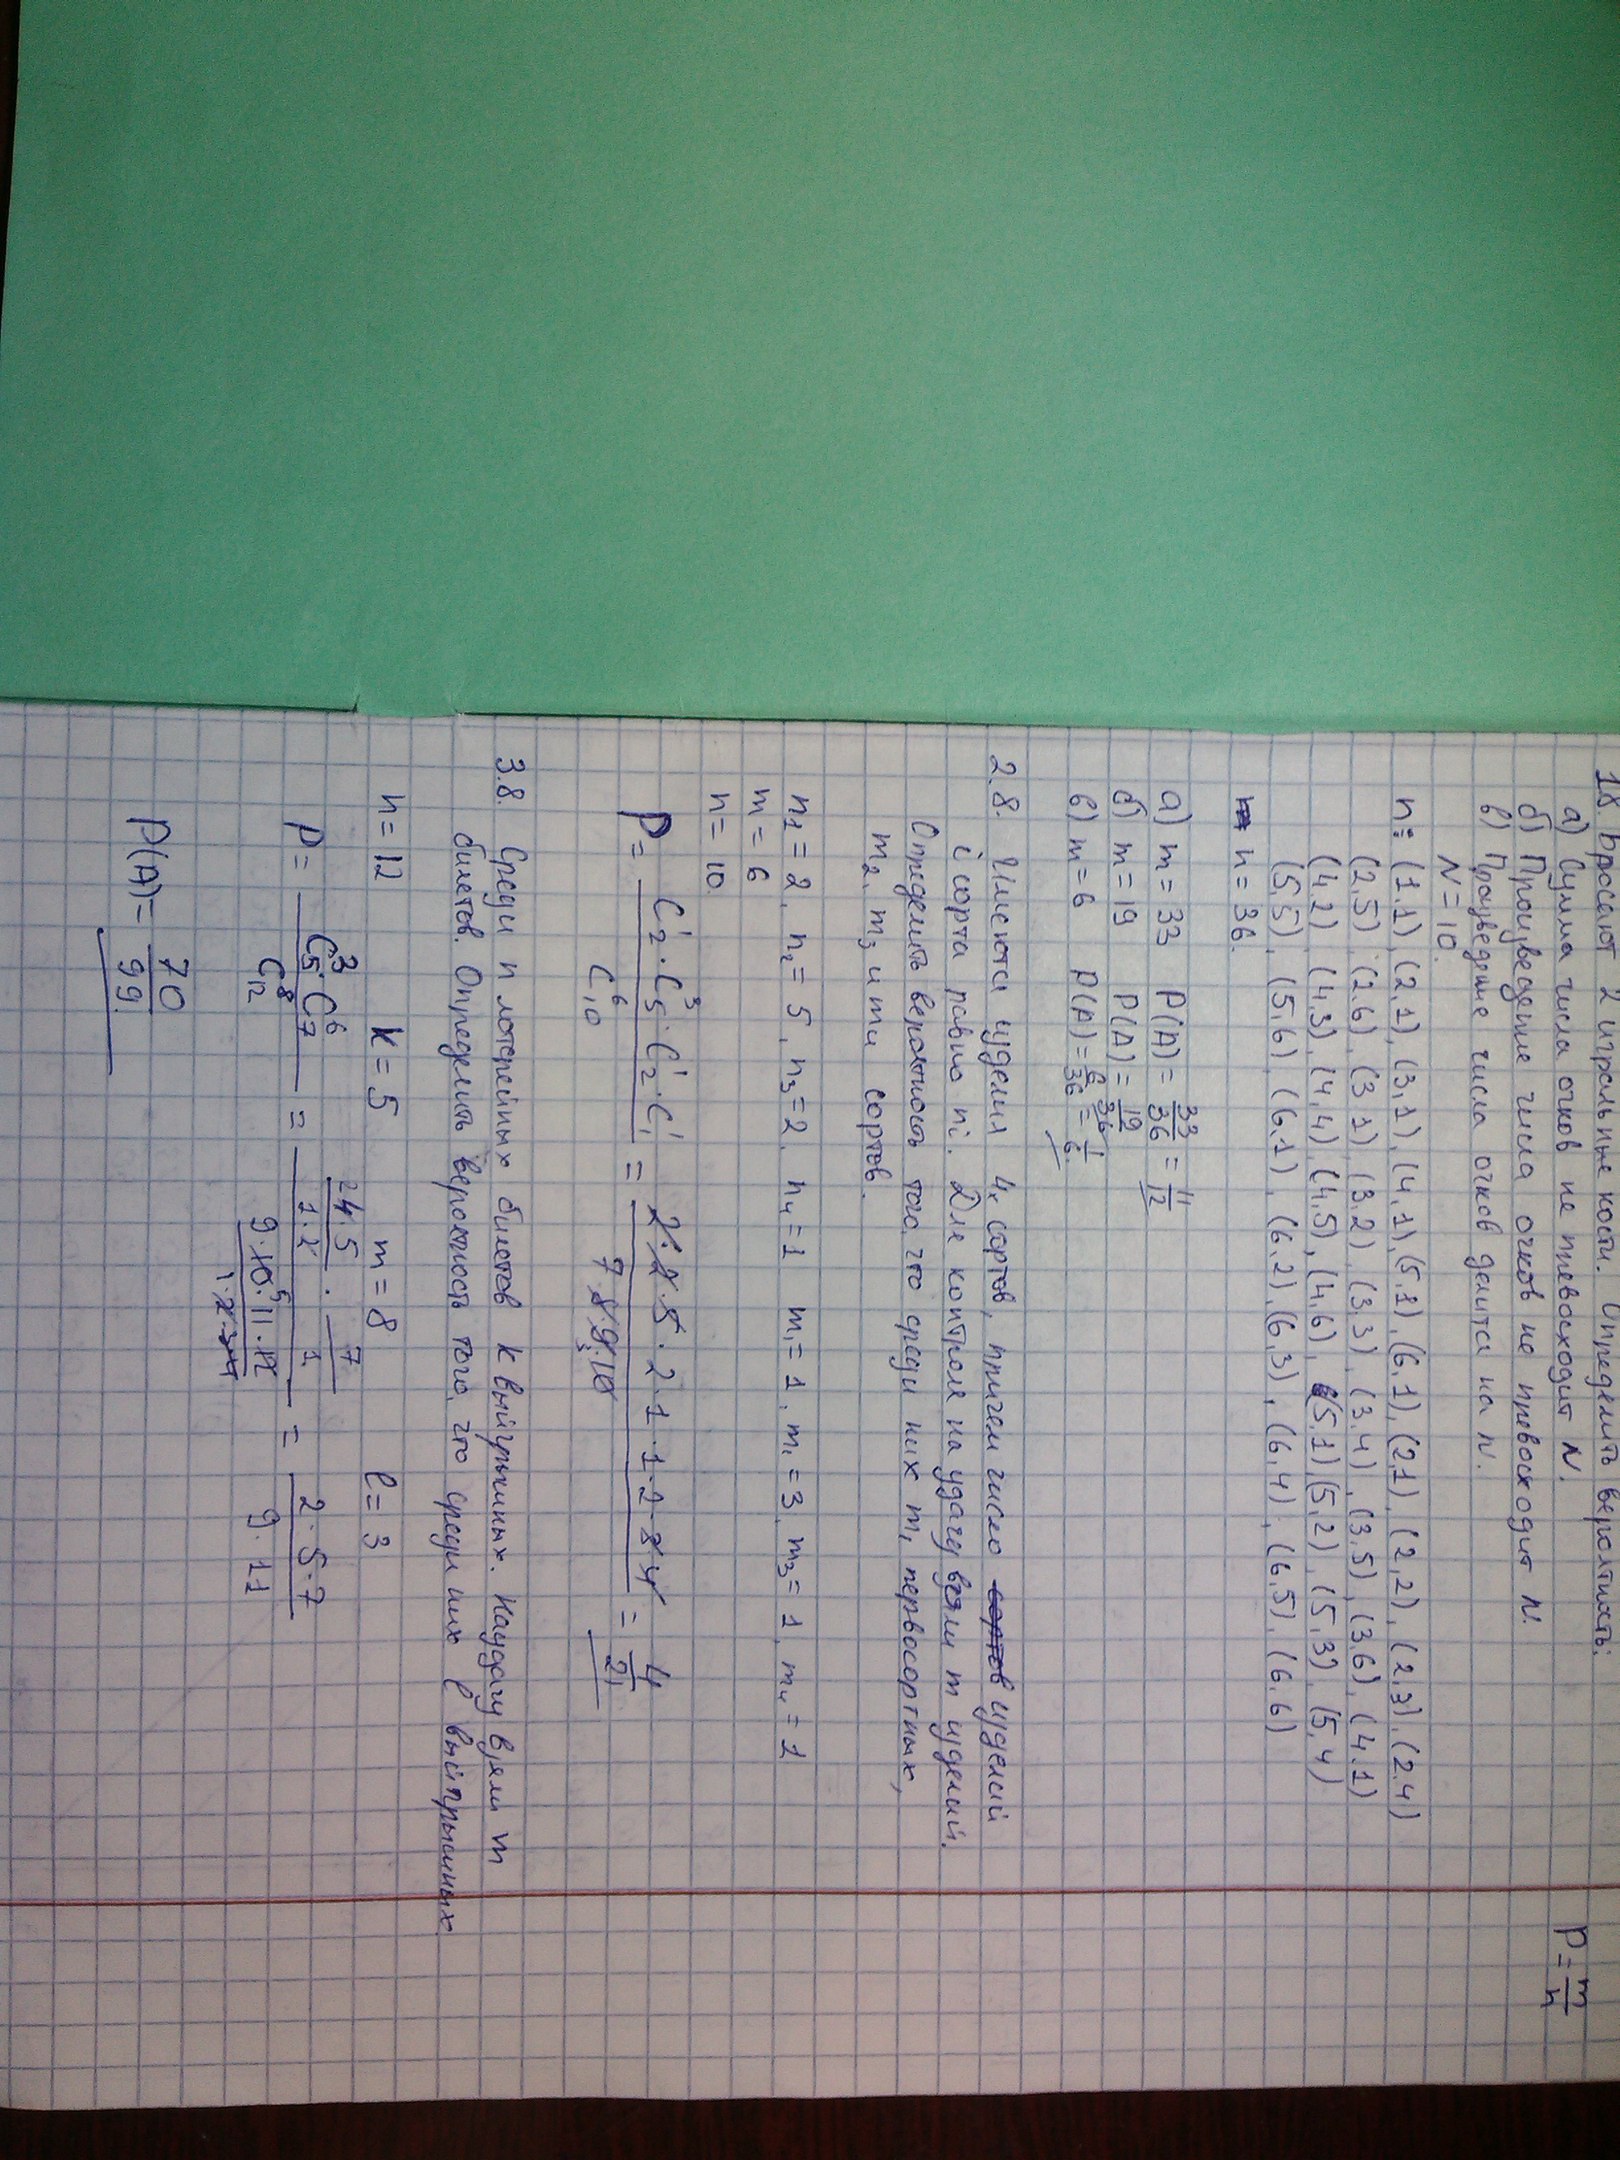 1.8. Бросают 2 игральные кости. Определить вероятность:
а) Сумма числа очков не превосходит N.
P = m/n
б) Произведение числа очков не превосходит N.
в) Произведение числа очков делится на N.
N = 10.
n = (1,1), (2,1), (3,1), (4,1), (5,1), (6,1), (2,1), (2,2), (2,3), (2,4)
(2,5), (2,6), (3,1), (3,2), (3,3), (3,4), (3,5), (3,6), (4,1)
(4,2) (4,3), (4,4), (4,5), (4,6), (5,1), (5,2), (5,3), (5,4)
(5,5), (5,6), (6,1), (6,2), (6,3), (6,4), (6,5), (6,6)
n = 36.
а) m = 33 P(A) = 33/36 = 11/12
б) m = 19 P(A) = 19/36
в) m = 6 P(A) = 6/36 = 1/6.
2.8. Имеются изделия 4х сортов, причем число сортов изделий
i сорта равно ni. Для контроля на удачу взяли m изделий.
Определить вероятность того, что среди них m1 первосортных,
m2, m3 и m4 сортов.
n1 = 2, n2 = 5, n3 = 2, n4 = 1 m1 = 1, m2 = 3, m3 = 1, m4 = 1
m = 6
n = 10.
P = C₂¹·C₅³·C₂¹·C₁¹ / C₁₀⁶ = 2·2·5·2·1·1·2·3·4 / 7·8·9·10 3 = 4/21
3.8. Среди n лотерейных билетов k выйгрышных. Наудачу взяли m
билетов. Определить вероятность того, что среди них l выйгрышных.
n = 12 k = 5 m = 8 l = 3
P = C₅³·C₇⁶ / C₁₂⁸ = 2 4·5/1·2 · 7/1 / 9·10·5 11·12/1·2·3·4 = 2·5·7 / 9·11
P(A) = 70/99.